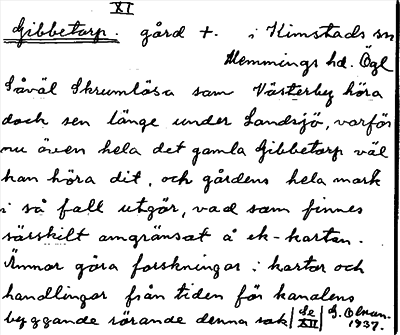 XI
Gibbetorp. gård +. i Kimstads sn
Memmings hd. Ögl
Såväl Skrumlösa som Västerby höra
dock sen länge under Landsjö, varför
nu även hela det gamla Gibbetorp väl
kan höra dit, och gårdens hela mark
i så fall utgör, vad som finnes
särskilt omgränsat å ek-kartan.
Ämnar göra forskningar i kartor och
handlingar från tiden för kanalens
byggande rörande denna sak | Se XII | G. Olsson. 1937.